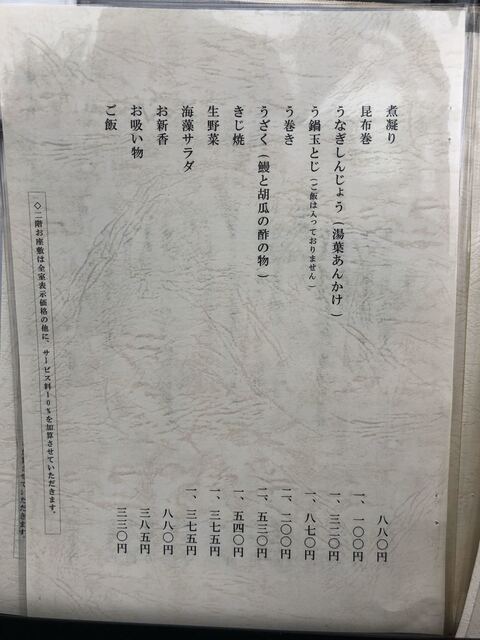 煮凝り 八八〇円
昆布巻 一、一〇〇円
うなぎしんじょう（湯葉あんかけ） 一、三二〇円
う鍋玉とじ（ご飯は入っておりません） 一、八七〇円
う巻き 二、二〇〇円
うざく（鰻と胡瓜の酢の物） 二、五三〇円
きじ焼 一、五四〇円
生野菜 一、三七五円
海藻サラダ 一、三七五円
お新香 八八〇円
お吸い物 三八五円
ご飯 三三〇円
◇二階お座敷は全室表示価格の他に、サービス料10%を加算させていただきます。